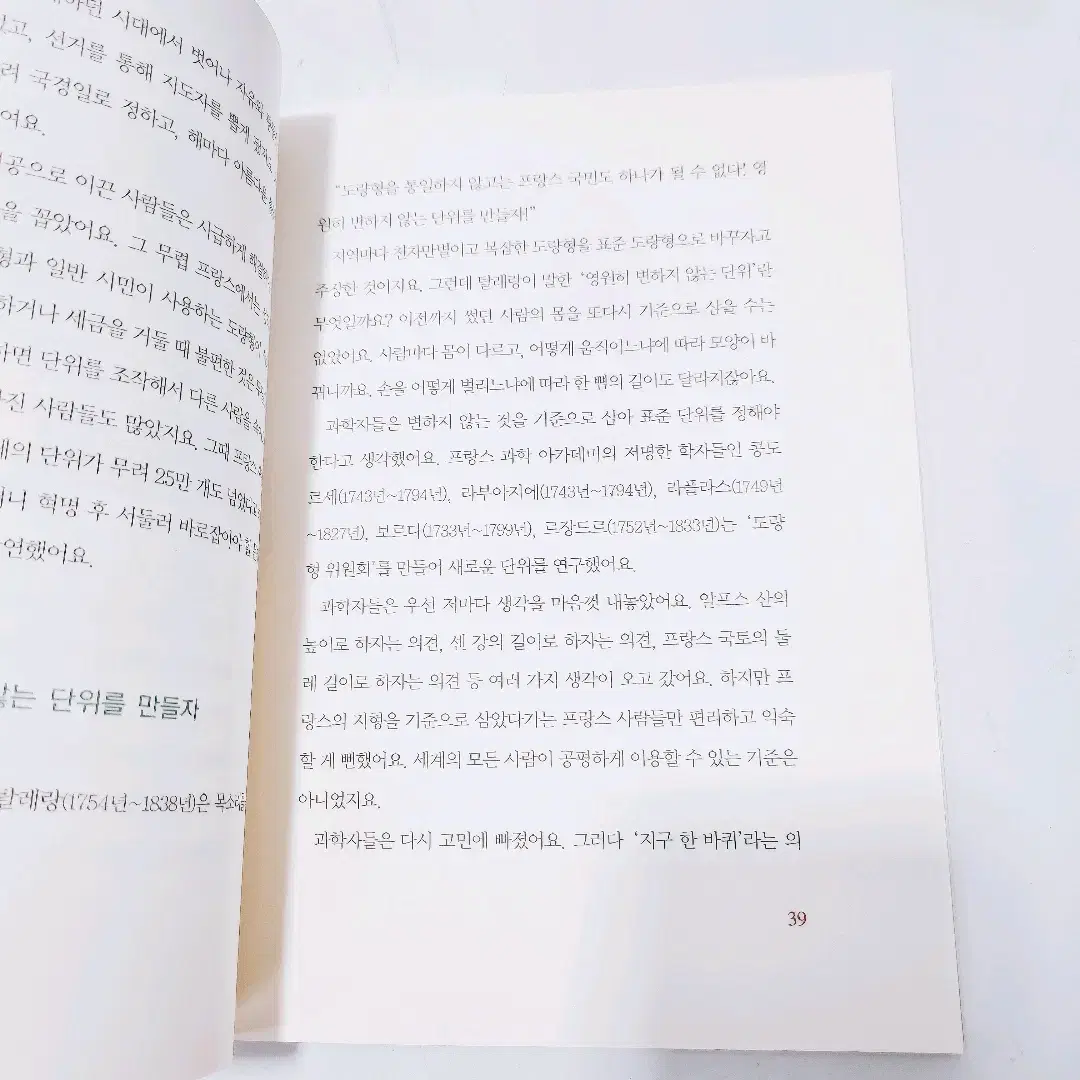 시대에서 벗어나
선거를 통해 지도자를 뽑게
국경일로 정하고, 해마다 아름다운
여요.
공으로 이끈 사람들은 시급하게
을 꼽았어요. 그 무렵 프랑스에서는
형과 일반 시민이 사용하는 도량형이
하거나 세금을 거둘 때 불편한 것은
하면 단위를 조작해서 다른 사람을
진 사람들도 많았지요. 그때
의 단위가 무려 25만 개도
혁명 후 서둘러 바로잡아야 할
연했어요.
않는 단위를 만들자
탈레랑(1754년~1838년)은
“도량형을 통일하지 않고는 프랑스 국민도 하나가 될 수 없다! 영
원히 변하지 않는 단위를 만들자!”
지역마다 천차만별이고 복잡한 도량형을 표준 도량형으로 바꾸자고
주장한 것이지요. 그런데 탈레랑이 말한 ‘영원히 변하지 않는 단위’란
무엇일까요? 이전까지 썼던 사람의 몸을 또다시 기준으로 삼을 수는
없었어요. 사람마다 몸이 다르고, 어떻게 움직이느냐에 따라 모양이 바
뀌니까요. 손을 어떻게 벌리느냐에 따라 한 뼘의 길이도 달라지잖아요.
과학자들은 변하지 않는 것을 기준으로 삼아 표준 단위를 정해야
한다고 생각했어요. 프랑스 과학 아카데미의 저명한 학자들인 콩도
르세(1743년~1794년), 라부아지에(1743년~1794년), 라플라스(1749년
~1827년), 보르다(1733년~1799년), 르장드르(1752년~1833년)는 ‘도량
형 위원회’를 만들어 새로운 단위를 연구했어요.
과학자들은 우선 저마다 생각을 마음껏 내놓았어요. 알프스 산의
높이로 하자는 의견, 센 강의 길이로 하자는 의견, 프랑스 국토의 둘
레 길이로 하자는 의견 등 여러 가지 생각이 오고 갔어요. 하지만 프
랑스의 지형을 기준으로 삼았다가는 프랑스 사람들만 편리하고 익숙
할 게 뻔했어요. 세계의 모든 사람이 공평하게 이용할 수 있는 기준은
아니었지요.
과학자들은 다시 고민에 빠졌어요. 그러다 ‘지구 한 바퀴’라는 의
39